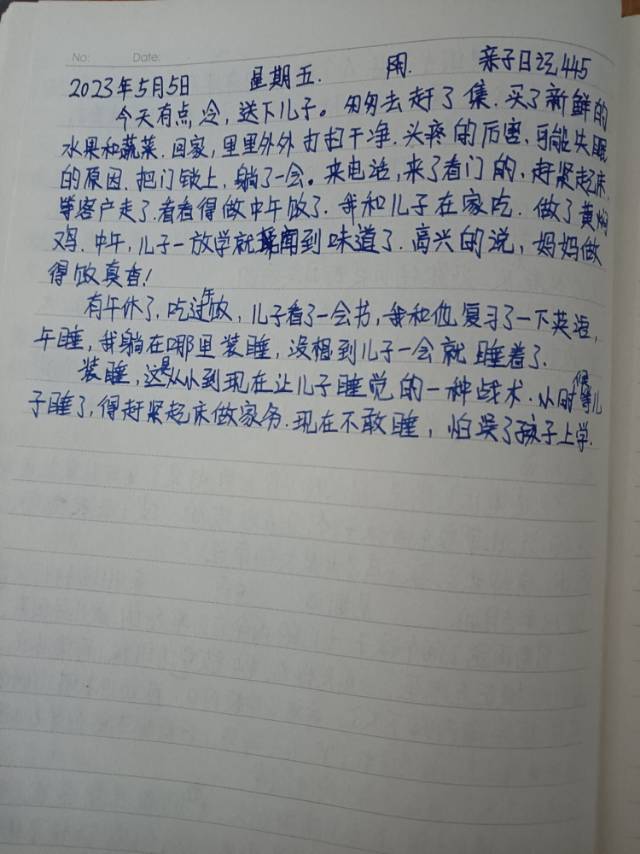 No: Date:
2023年5月5日 星期五. 雨. 亲子日记445
今天有点冷,送下儿子。匆匆去赶了集.买了新鲜的
水果和蔬菜.回家,里里外外打扫干净.头疼的厉害,可能失眠
的原因.把门锁上,躺了一会。来电话,来了看门的,赶紧起床,
等客户走了.看看得做中午饭了.我和儿子在家吃.做了黄焖
鸡.中午,儿子一放学就闻到味道了.高兴的说,妈妈做
得饭真香!
有午休了,吃过午饭,儿子看了一会书,我和他复习了一下英语,
午睡,我躺在哪里装睡,没想到儿子一会就睡着了.
装睡,这是从小到现在让儿子睡觉的一种战术.小时候等儿
子睡了,得赶紧起床做家务.现在不敢睡,怕误了孩子上学.